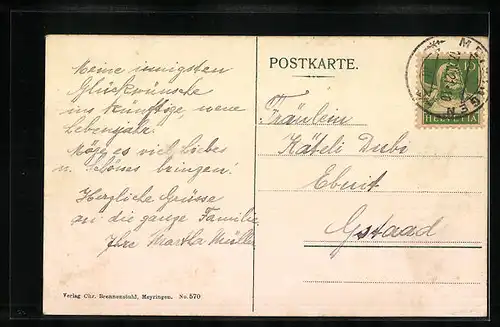 Meine innigsten
Glückwünsche
ins künftige, neue
Lebensjahr.
Möge es viel Liebes
u. Schönes bringen!
Herzliche Grüsse
an die ganze Familie
Ihre Martha Müller
Verlag Chr. Brennenstuhl, Meyringen. No. 570
POSTKARTE.
Fräulein
Käteli Dubi
Ebnit
Gstaad
10
HELVETIA